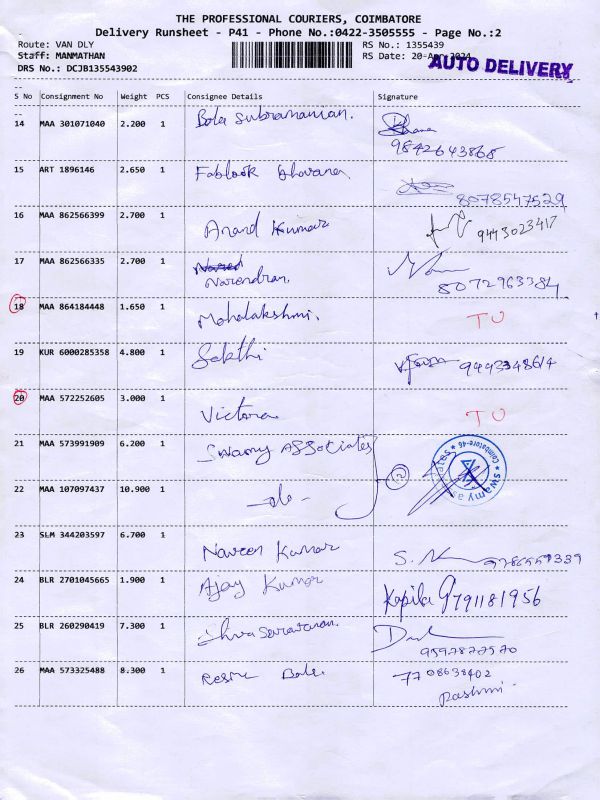 THE PROFESSIONAL COURIERS, COIMBATORE
Delivery Runsheet - P41 - Phone No.:0422-3505555 - Page No.:2
Route: VAN DLY RS No.: 1355439
Staff: MANMATHAN RS Date: 20-Apr-2024
AUTO DELIVERY
DRS No.: DCJB135543902
S No Consignment No Weight PCS Consignee Details Signature
14 MAA 301071040 2.200 1 Bala Subramanian.
9842643868
15 ART 1896146 2.650 1
8078547529
16 MAA 862566399 2.700 1 Anand Kumar 9443023417
17 MAA 862566335 2.700 1 Narendran.
8072963384
18 MAA 864184448 1.650 1 Mahalakshmi. TU
19 KUR 6000285358 4.800 1 Sakthi
20 MAA 572252605 3.000 1 Victoria TU
21 MAA 573991909 6.200 1 Swamy Associates
22 MAA 107097437 10.900 1 -do- 2
Coimbatore-46
23 SLM 344203597 6.700 1 Naveen Kumar
24 BLR 2701045665 1.900 1 Ajay Kumar Kapila 9791181956
25 BLR 260290419 7.300 1
26 MAA 573325488 8.300 1 7708638402
Rashmi.